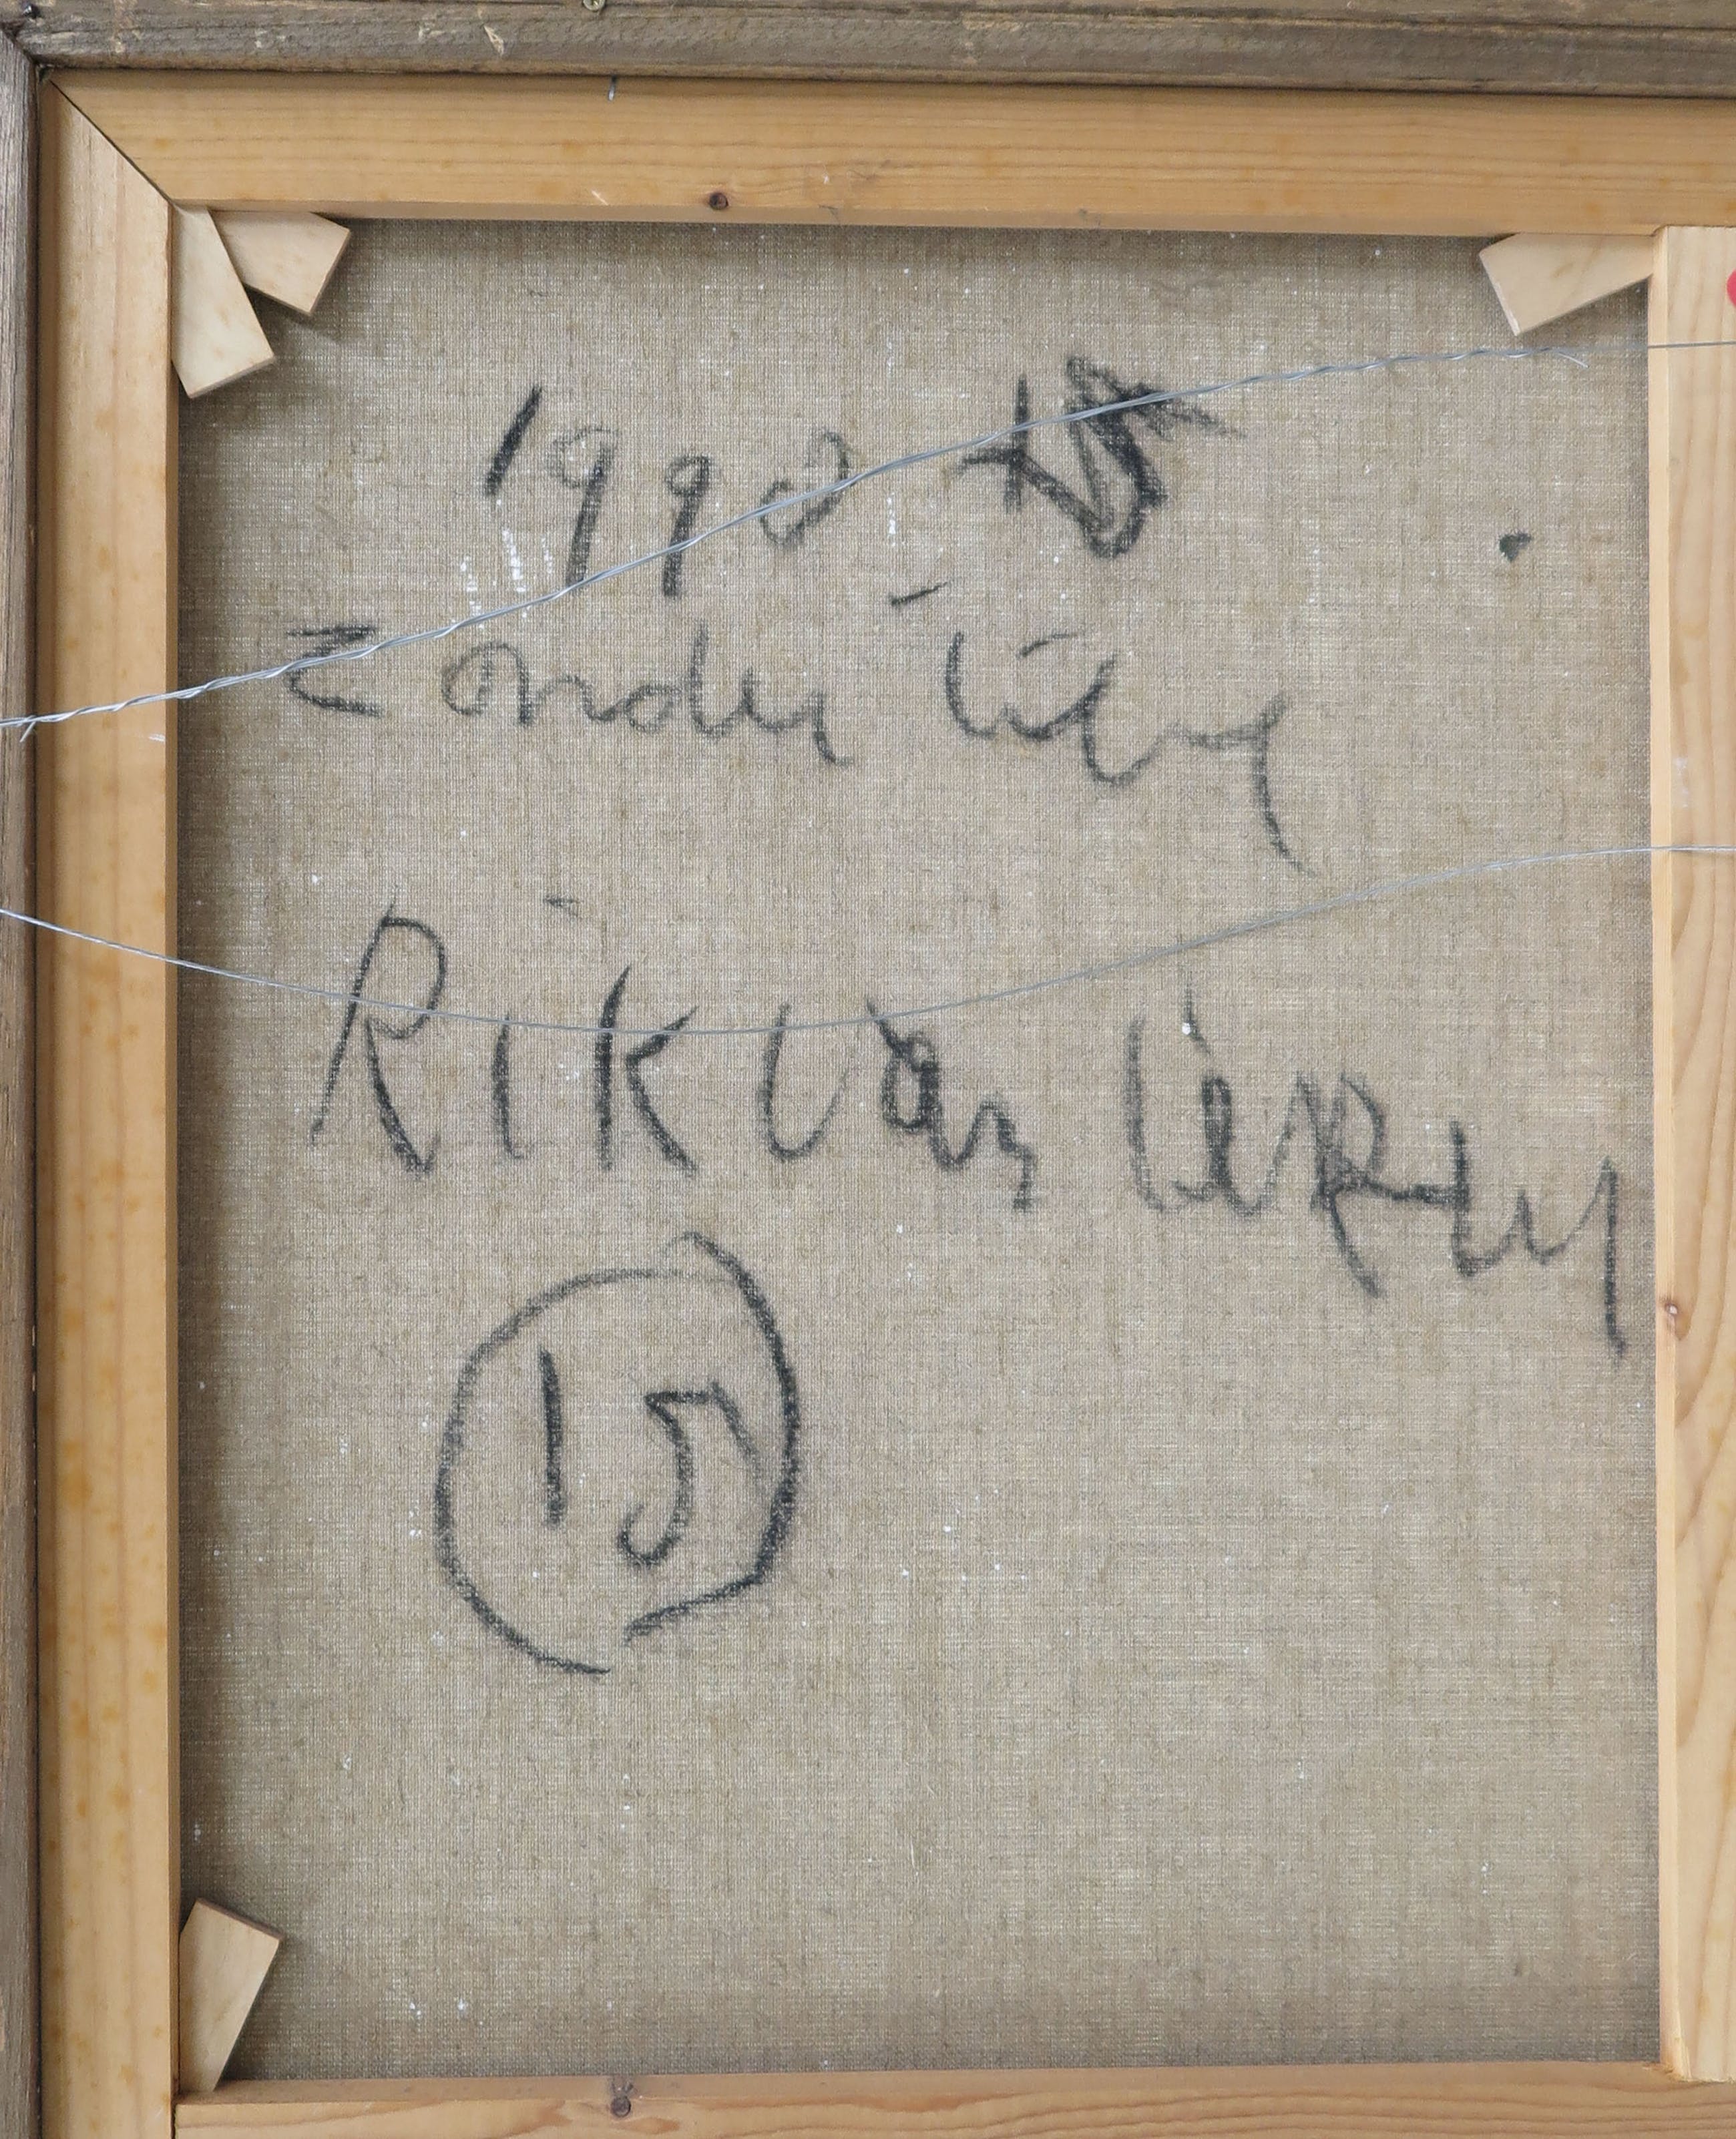 1990
zonder titel
Rik van Iersel
15